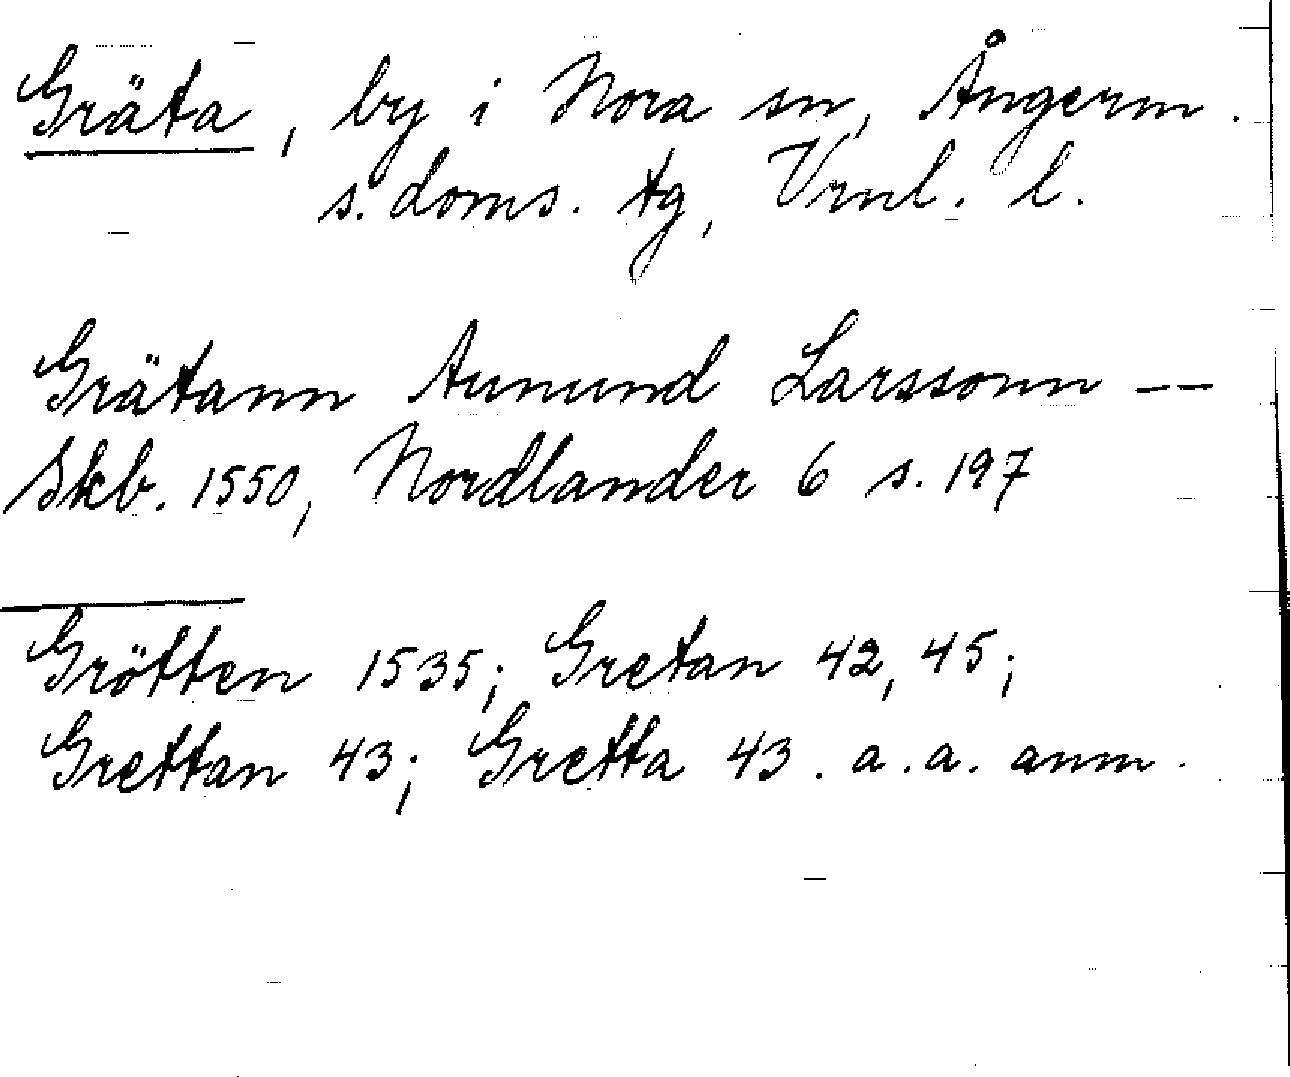 Gräta, by i Nora sn, Ångerm.
s. doms. tg, Vrnl. l.
Grätann Aunund Larssonn --
Skb. 1550, Nordlander 6 s. 197
Grötten 1535; Gretan 42, 45;
Grettan 43; Gretta 43. a. a. anm.